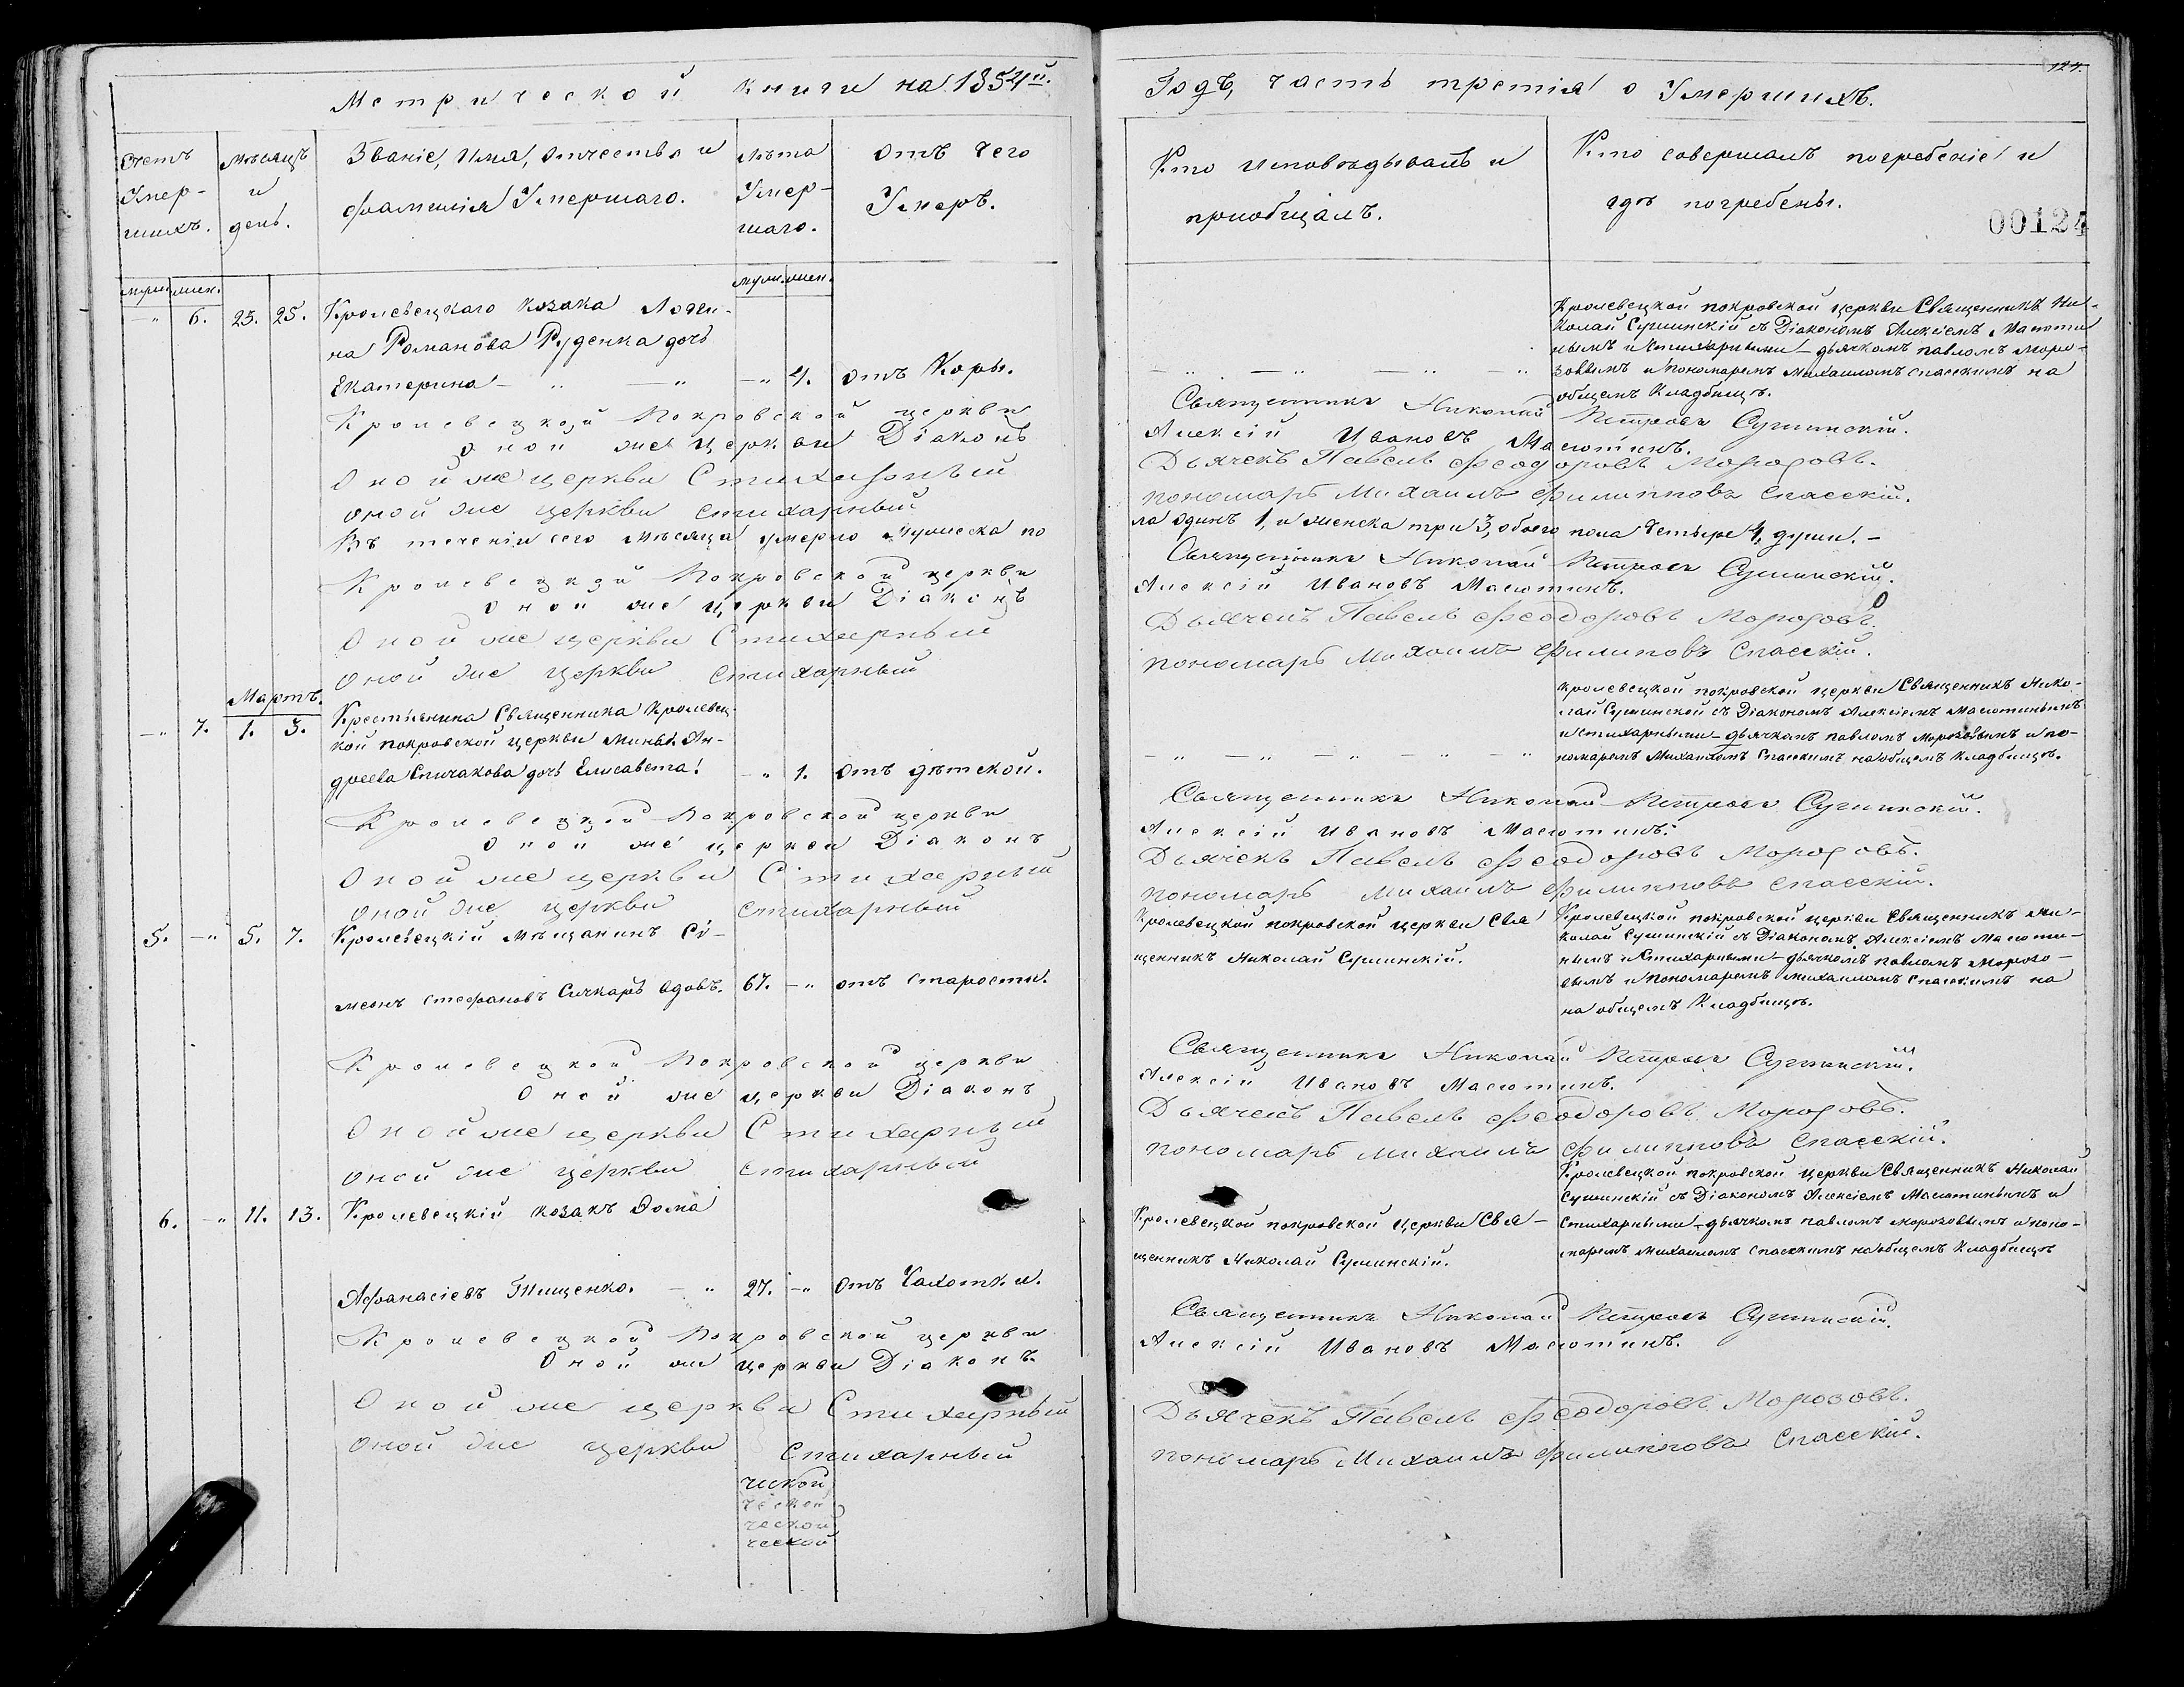 Метрической книги на 1854й.
Счетъ Умер- шихъ.
Мѣсяцъ и день.
Званіе, Имя, Отчество и фамилія Умершаго.
Лѣта Умер- шаго.
Отъ чего Умеръ.
муж. жен.
муж. жен.
—„ 6. 23. 25. Кролевецкаго козака Логги-
на Романова Руденка дочь
Екатерина — „ — „ —„ 4. отъ Коры.
Кролевецкой Покровской церкви
оной же церкви Діаконъ
Оной же церкви Стихарный
оной же церкви стихарный
Въ теченіи сего мѣсяца умерло мужеска по
Кролевецкой Покровской церкви
оной же церкви Діаконъ
Оной же церкви Стихарный
оной же церкви стихарный
Мартъ.
—„ 7. 1. 3. Крестьянина Священника Кролевец-
кой покровской церкви Мины Ан-
дреева Спичакова дочь Елисавета. —„ 1. отъ дѣтской.
Кролевецкой Покровской церкви
оной же церкви Діаконъ
Оной же церкви Стихарный
оной же церкви стихарный
5. —„ 5. 7. Кролевецкій Мѣщанинъ Сѵ-
меонъ Стефановъ Сичкарь вдовъ. 67. —„ отъ старости.
Кролевецкой Покровской церкви
Оной же церкви Діаконъ
Оной же церкви Стихарный
оной же церкви стихарный
6. —„ 11. 13. Кролевецкій козакъ Ѳома
Афанасіевъ Тищенко. — „ 27. —„ отъ Чахотки.
Кролевецкой Покровской церкви
Оной же церкви Діаконъ
Оной же церкви Стихарный
оной же церкви стихарный
ческой
ческой
ческой
ческой
124.
Годъ, часть третія о Умершихъ.
Кто исповѣдывалъ и приобщалъ.
Кто совершалъ погребеніе и гдѣ погребены.
00124
Кролевецкой покровской церкви Священникъ Ни-
колай Сушинскій съ Діакономъ Алексіемъ Масюти-
нымъ и стихарными — дьячкомъ павломъ Моро-
—„ —„ —„ —„ зовымъ и пономаремъ Михаиломъ спасскимъ на
общемъ Кладбищѣ.
Священникъ Николай Петровъ Сушинскій.
Алексій Ивановъ Масютинъ.
Дьячекъ Павелъ Феодоровъ Морозовъ.
пономарь Михаилъ Филипповъ Спасскій.
ла одинъ 1, и женска три 3, обоего пола четыре 4, души. —
Священникъ Николай Петровъ Сушинскій.
Алексій Ивановъ Масютинъ.
Дьячекъ Павелъ Феодоровъ Морозовъ.
пономарь Михаилъ Филиповъ Спасскій.
кролевецкой покровской церкви Священникъ Нико-
лай Сушинской съ Діакономъ Алексіемъ Масютинымъ
и стихарными — дьячкомъ павломъ Морозовымъ и по-
—„ —„ „ „ „ номаремъ Михаиломъ Спасскимъ на общемъ Кладбищѣ.
Священникъ Николай Петровъ Сушинскій.
Алексій Ивановъ Масютинъ.
Дьячекъ Павелъ Феодоровъ Морозовъ.
пономарь Михаилъ Филипповъ спасскій.
Кролевецкой покровской церкви Свя
щенникъ Николай Сушинскій.
Кролевецкой покровской церкви Священникъ Ни-
колай Сушинскій съ Діакономъ Алексіемъ Масюти-
нымъ и стихарными — дьячкомъ павломъ Морозо-
вымъ и пономаремъ михаиломъ спасскимъ на
на общемъ Кладбищѣ.
Священникъ Николай Петровъ Сушинскій.
Алексій Ивановъ Масютинъ.
Дьячекъ Павелъ Феодоровъ Морозовъ.
пономарь михаилъ Филипповъ Спасскій.
Кролевецкой покровской церкви Свя-
щенникъ Николай Сушинскій.
Кролевецкой покровской церкви Священникъ Николай
Сушинскій съ Діакономъ Алексіемъ Масютинымъ и
стихарными — дьячкомъ павломъ морозовымъ и поно-
маремъ Михаиломъ спасскимъ на общемъ Кладбищѣ
Священникъ Николай Петровъ Сушинскій.
Алексій Ивановъ Масютинъ.
Дьячекъ Павелъ Феодоровъ Морозовъ.
пономарь Михаилъ Филипповъ Спасскій.